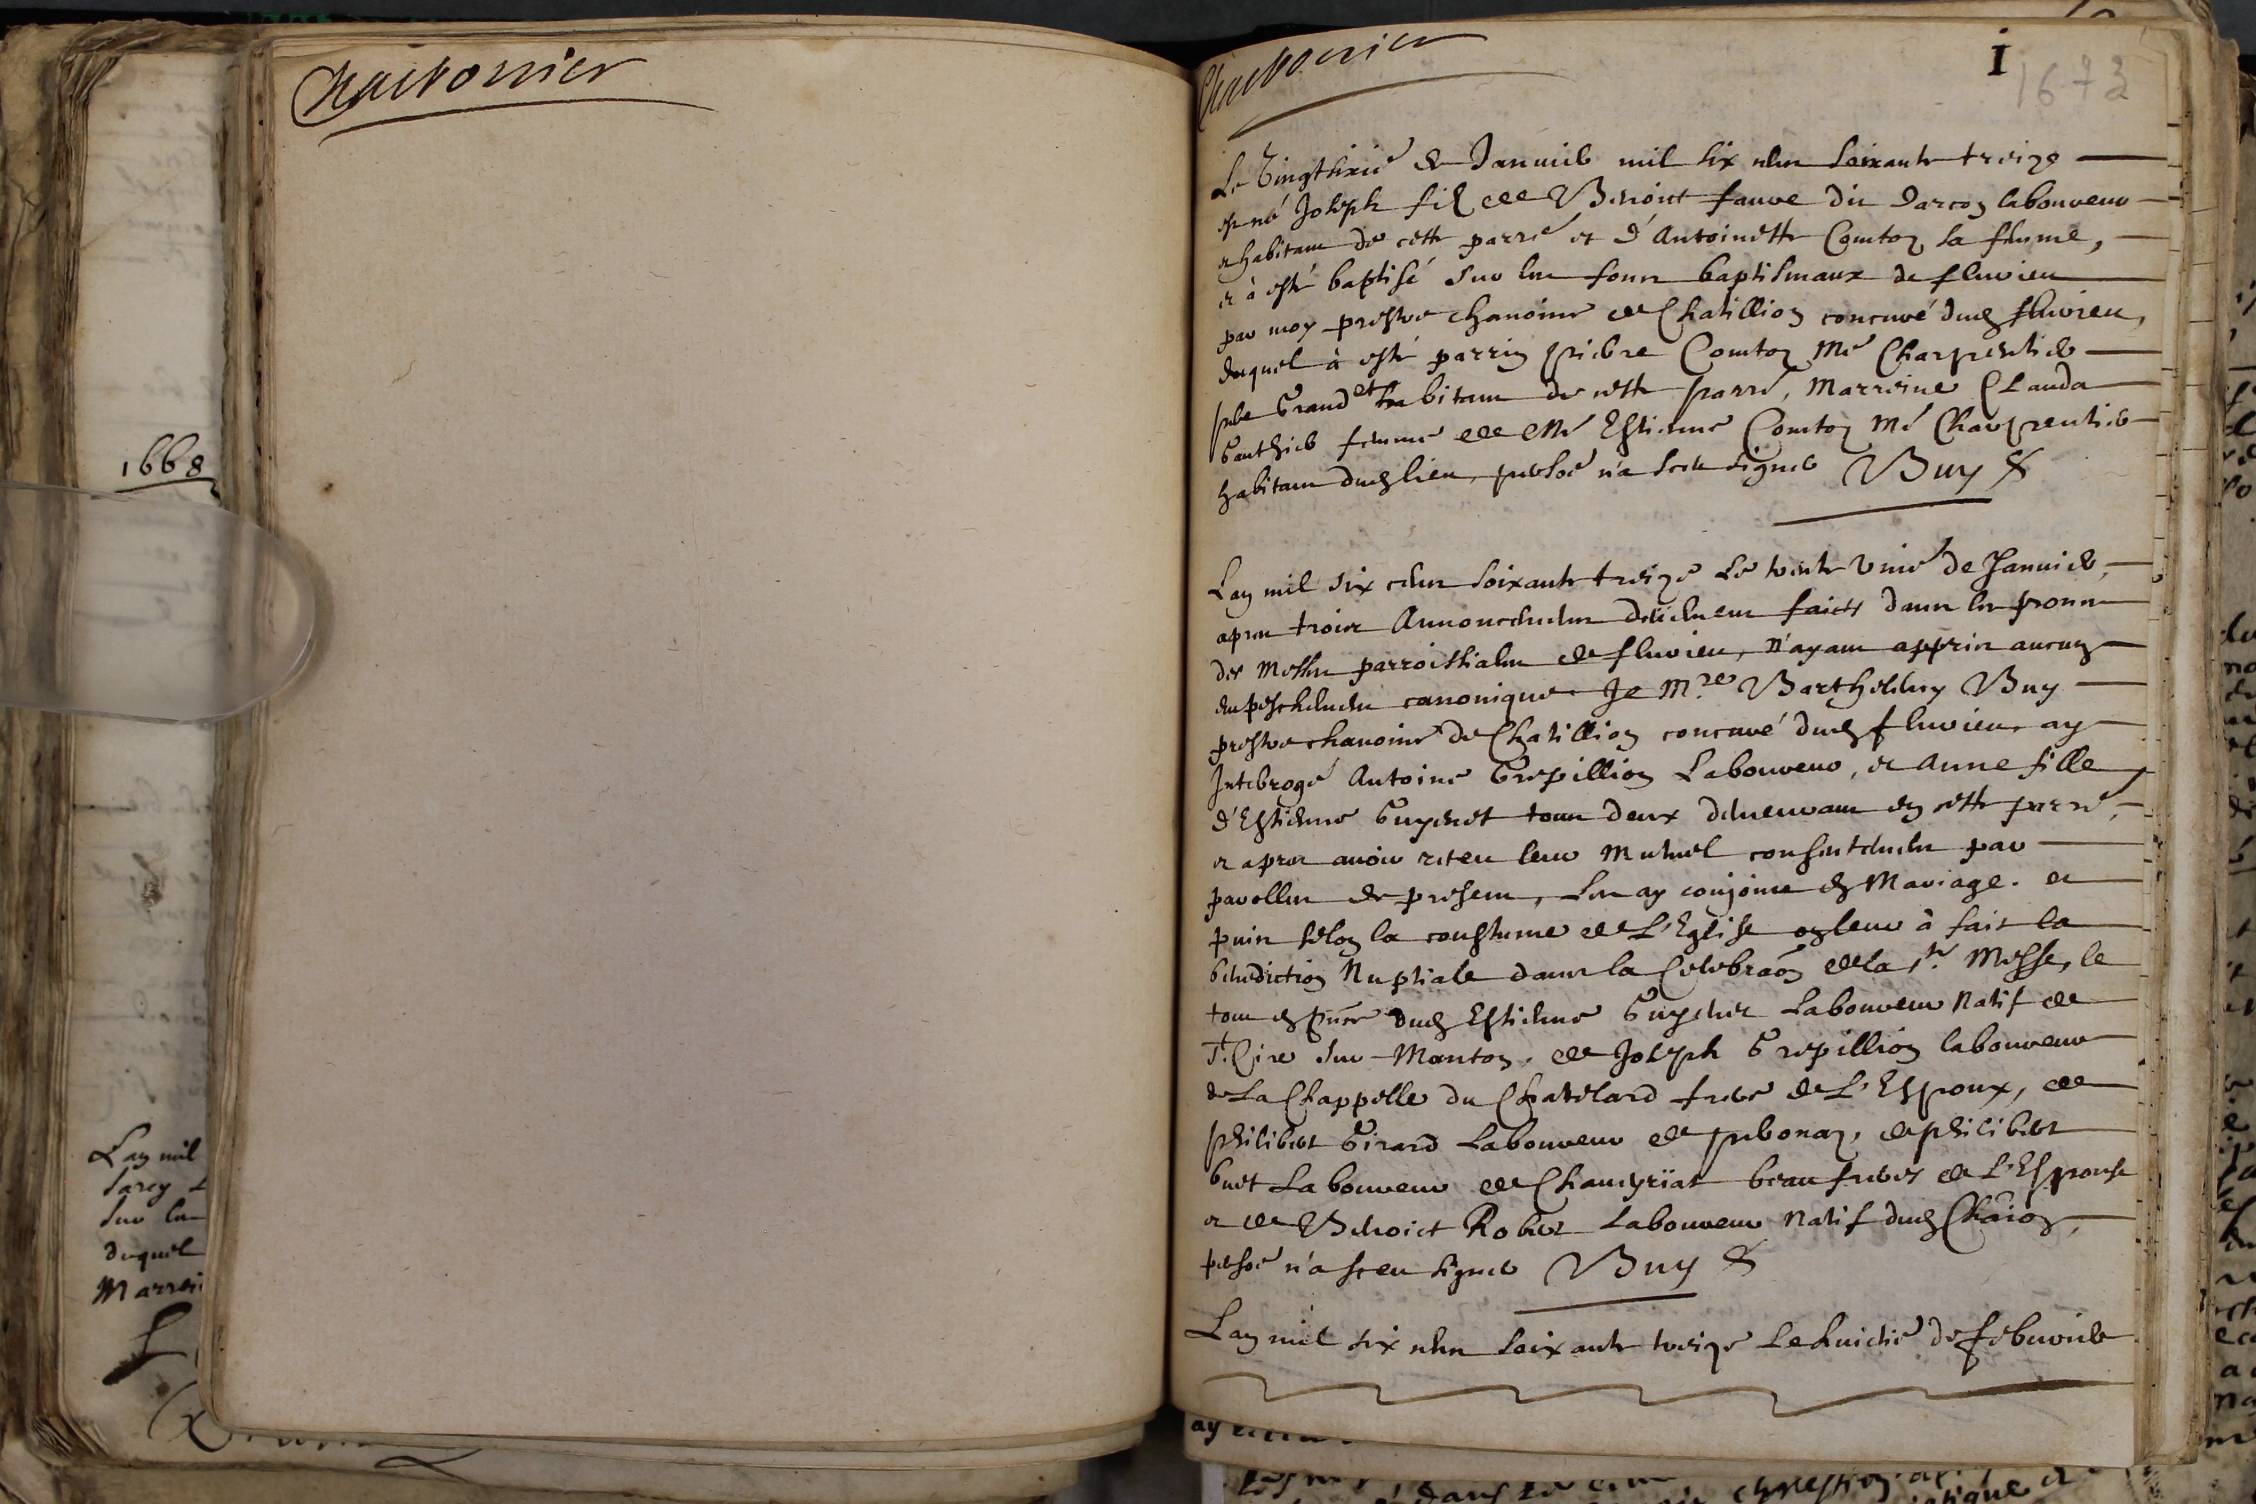 1668
Lan mil
duquel
Charbonnier
Charbonnier
1
1673
Le vingtsixié de Januier mil six cens soixante treize
est né Joseph filz de Benoict fauue dit darcon laboureur
et habitant de cette parré et d'Antoinette Comtoz sa femme,
et à esté baptisé sur les fonts baptismaux de fluuieu
par moy prestre chanoine de Chatillion concuré dud fluuieu,
duquel à esté parrin pierre Comtoz Mé Charpentier
pere Grand et habitant de cette parré, Marreine Clauda
Gauthier femme de Mé Estienne Comtoz Mé Charpentier
habitant dud lieu, persoe n'a sceu signer Buy
Lan mil six cens soixante treize le trente vnié de Januier,
apres trois Annoncements faicts dans les prosnes
des Messes parroissiales de fluuieu, n'ayant appris aucun
empeschement canonique Je Mre Barthelemy Buy
prestre chanoine de Chatillion concuré dud fluuieu, ay
Interrogé Antoine Grepillion Laboureur, et Anne fille
d'Estienne Guychet tous deux demeurant en cette parré,
et apres auoir receu leur Mutuel consentement par
parolles de present, les ay conjoinct en Mariage. et
puis selon la coustume de L'Eglise on leur à fait la
benediction Nuptiale dans la Celebraon de la ste Messe, le
tout en pnce dud Estienne Guychet Laboureur Natif de
St. Cire sur Manton, de Joseph Grepillion laboureur
de La Chappelle du Chatelard frere de L'Espoux, de
philibert Girard Laboureur de perbonaz, de philibert
buet Laboureur de Chaueyriat beau freres de L'Espouse
et de Benoict Robert Laboureur Natif dud Chaon,
persoe n'a sceu signer Buy
Lan mil six cens soixante treize Le huictié de feburier